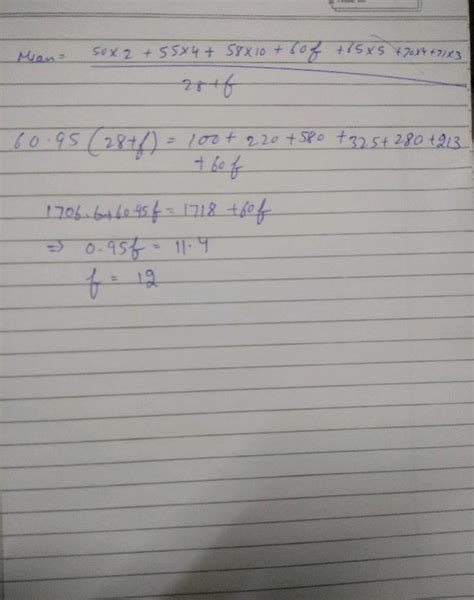 Mean = 50×2 + 55×4 + 58×10 + 60f + 65×5 + 70×4 + 71×3
28+f
60.95 (28+f) = 100 + 220 + 580 + 325 + 280 + 213
+ 60f
1706.6+60.95f = 1718 + 60f
⇒ 0.95f = 11.4
f = 12